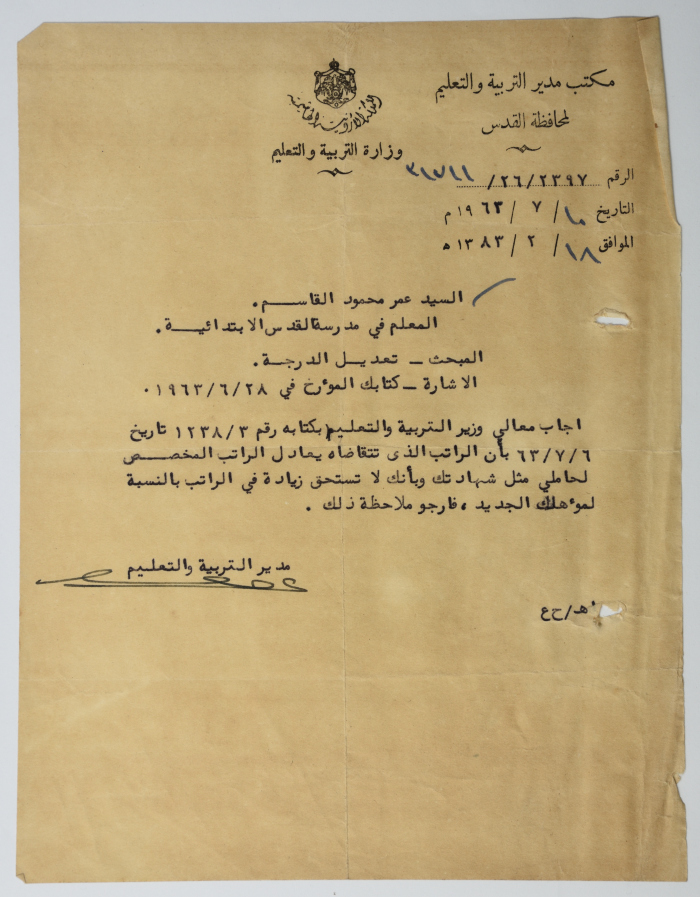 مكتب مدير التربية والتعليم
لمحافظة القدس
المملكة الأردنية الهاشمية
وزارة التربية والتعليم
الرقم ٢٦/٢٣٩٧/ ٣١٧١١
التاريخ ١٠/ ٧ / ١٩٦٣ م
الموافق ١٨/ ٢ / ١٣٨٣ ه
السيد عمر محمود القاسم .
المعلم في مدرسة القدس الابتدائية .
المبحث ـ تعديل الدرجة .
الاشارة ـ كتابك المؤرخ في ١٩٦٣/٦/٢٨ ٠
اجاب معالي وزير التربية والتعليم بكتابه رقم ١٢٣٨/٣ تاريخ
٦٣/٧/٦ بأن الراتب الذى تتقاضاه يعادل الراتب المخصص
لحاملي مثل شهادتك وبأنك لا تستحق زيادة في الراتب بالنسبة
لموءهلك الجديد ، فارجو ملاحظة ذلك .
مدير التربية والتعليم
هـ/ح ع